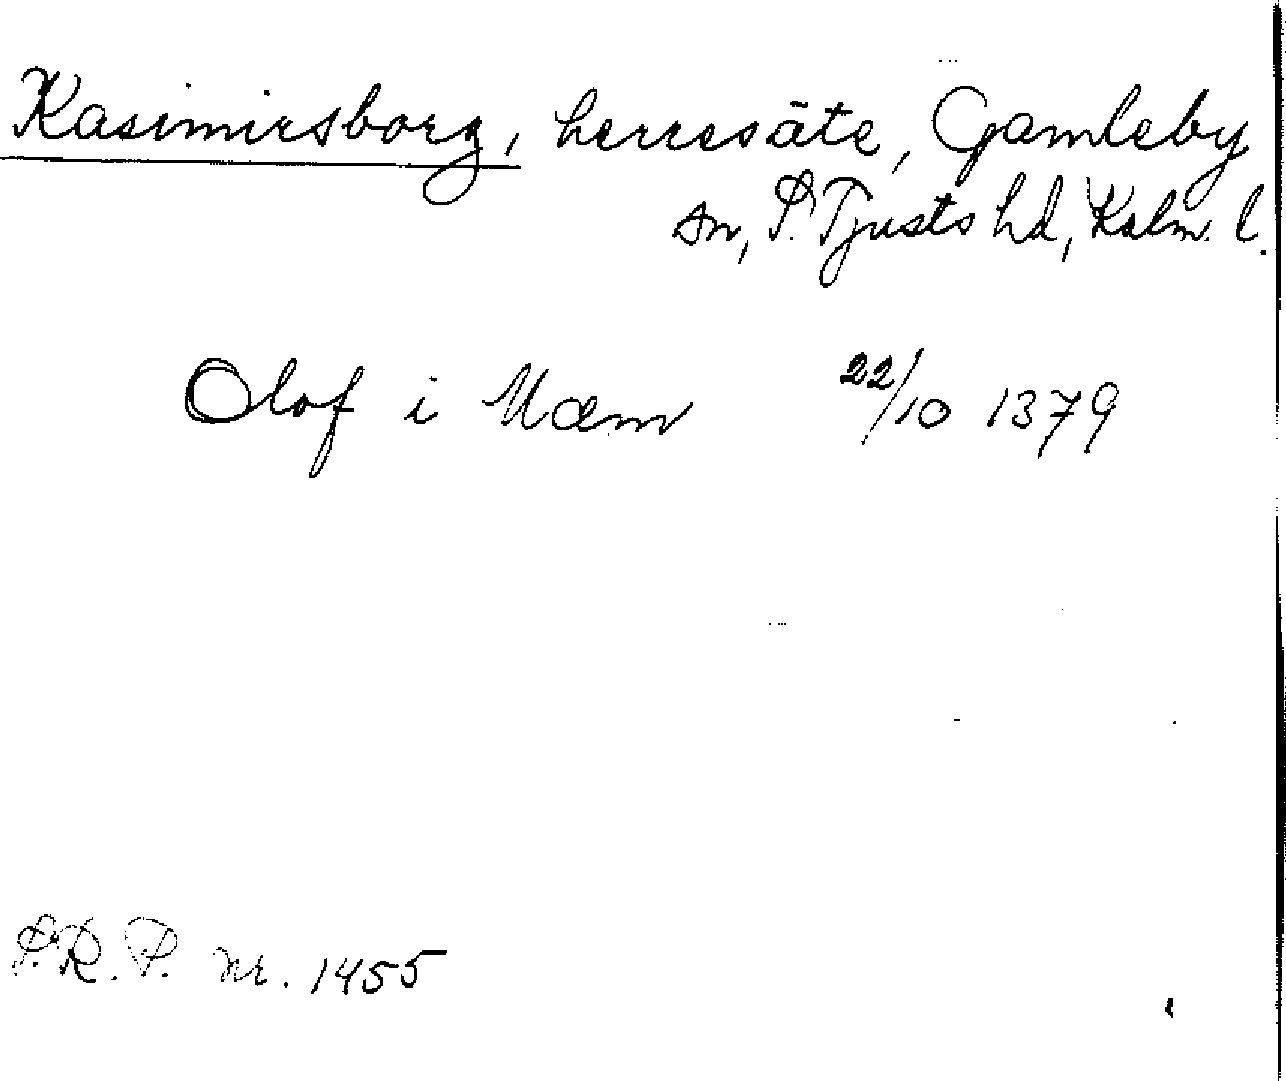 Kasimirsborg, herresäte, Gamleby
sn, S. Tjusts hd, Kalm. l.
Olof i Mæm 22/10 1379
S.R.P. nr. 1455